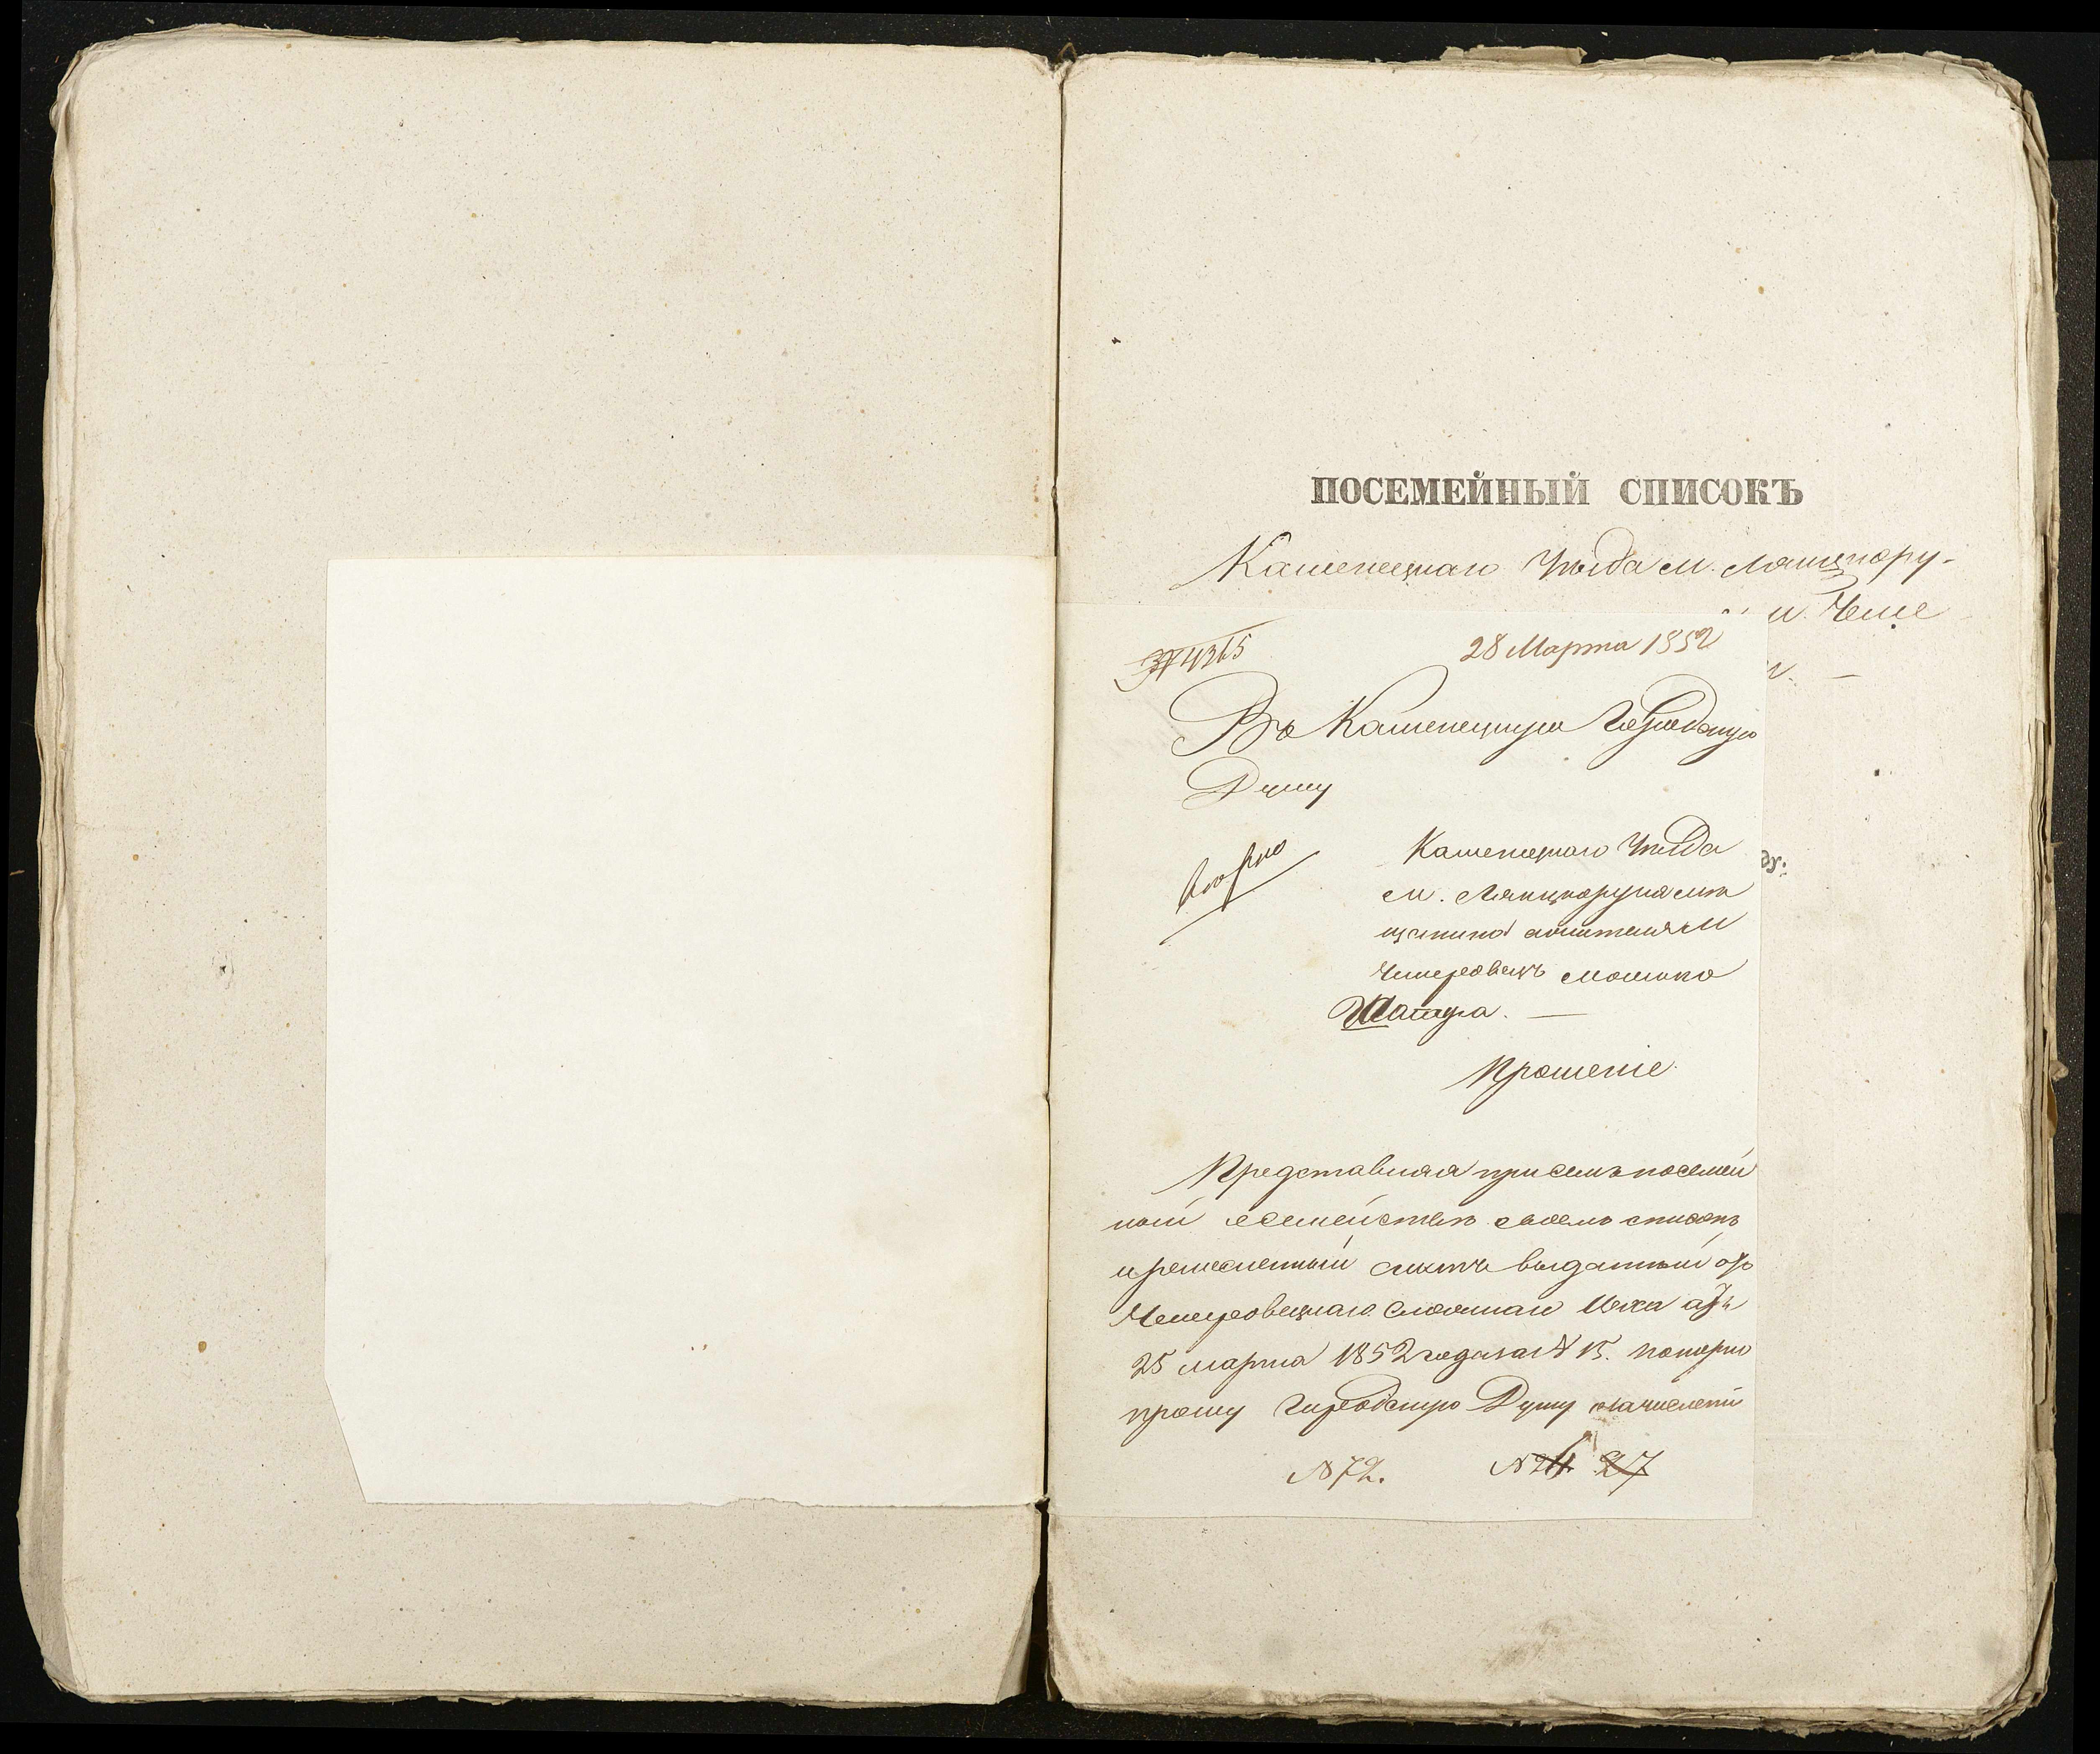 ПОСЕМЕЙНЫЙ СПИСОКЪ
Каменецкаго Уѣзда м. Лянцкору-
и Чеме
4365
28 Марта 1852
Въ Каменецкую Городскую
Думу
Каменецкаго Уѣзда
м. Лянцкоруня мѣ
щанина жительст. м
Чемеровецъ Мошка
Шапира. —
Прошеніе
Представляя при семъ посемей
ный о семействѣ своемъ списокъ
и ремесленный листъ выданный отъ
Чемеровецкаго Цеха отъ
25 марта 1852 года за № 15. покорно
прошу Городскую Думу о зачисленіи
№ 72. № 24 27